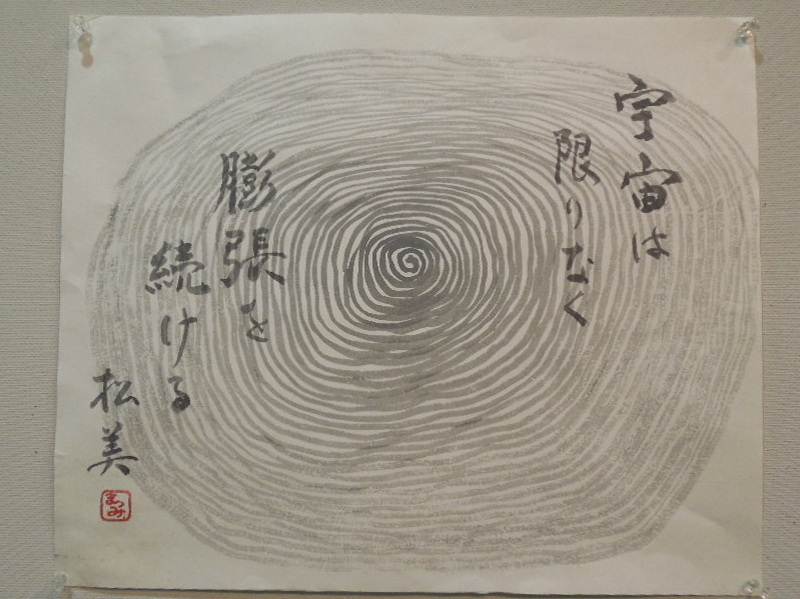 宇宙は
限りなく
膨張を
続ける
松美
まつみ